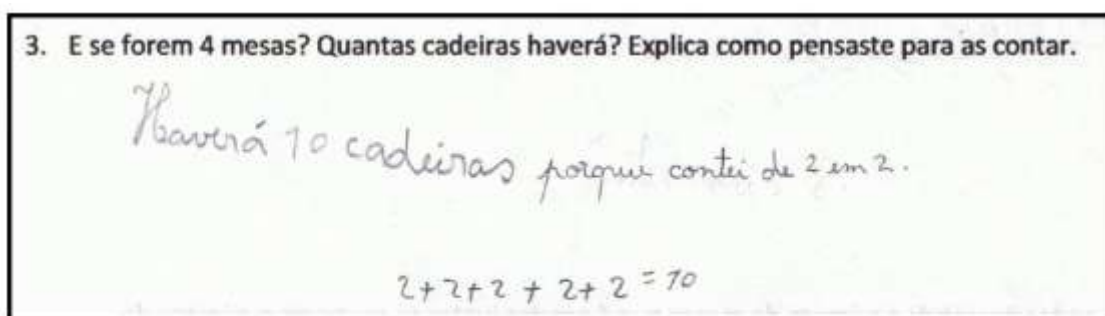 3. E se forem 4 mesas? Quantas cadeiras haverá? Explica como pensaste para as contar.
Haverá 10 cadeiras porque contei de 2 em 2.
2+2+2+2+2=10